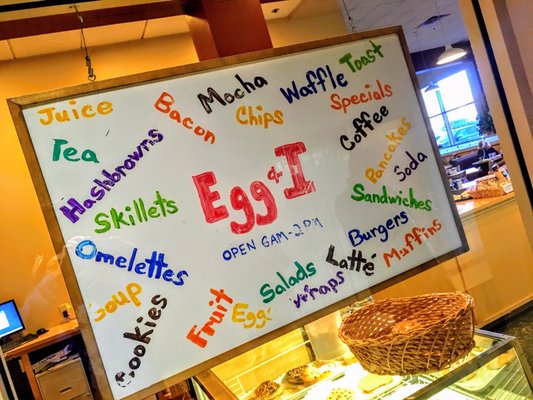 Juice
Bacon
Mocha
Waffle
Toast
Tea
Chips
Specials
Hashbrowns
Coffee
Pancakes
Egg & I
Soda
Skillets
Sandwiches
OPEN 6AM-2PM
Omelettes
Burgers
Muffins
Latté
Soup
Salads
Wraps
Fruit
Eggs
Cookies